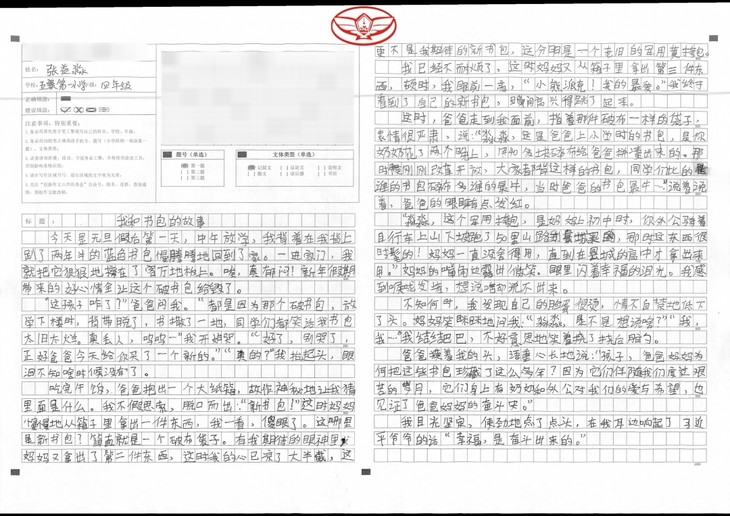 姓名：张益淼
学校：第一小学 班级：四年级
正确填涂：
错误填涂：
注意事项，特别重要：
题号（单选）
第一题
第二题
第三题
文体类型（单选）
记叙文
议论文
说明文
标 题：
我和书包的故事
今天是元旦假后第一天，中午放学，我背着在我背上
趴了两年半的蓝白书包慢腾腾地回到了家。一进家门，我
就把它狠狠地摔在了客厅地板上。唉，真郁闷！新年假期
带来的好心情全让这个破书包给毁了。
“这孩子咋了？”爸爸问我。“都是因为那个破书包，放
学下楼时，背带脱了，书撒了一地，同学们都笑话我书包
太旧太烂。真丢人，呜呜……”我开始哭。“好了，别哭了，
正好爸爸今天给你买了一个新的。”“真的？”我抬起头，眼
泪不知啥时候没有了。
吃完午饭，爸爸抱出一个大纸箱，故作神秘地让我猜
里面是什么。我不假思索，脱口而出：“新书包！”这时妈妈
慢慢地从箱子里拿出一件东西，我一看，傻眼了。这哪里
是新书包？简直就是一个破布袋子。在我期待的眼神里，
妈妈又拿出了第二件东西，这时我的心已凉了大半截，这
更不是我期待的新书包，这分明是一个老旧的军用黄挎包。
我已经不耐烦了，这时妈妈又从箱子里拿出第三件东
西，顿时，我眼前一亮，“小熊派克！我的最爱。”我终于
看到了自己的新书包，瞬间高兴得跳了起来。
这时，爸爸走到我面前，指着那件破布一样的袋子，
表情很严肃，说：“淼淼，这是爸爸上小学时的书包，是你
奶奶花了两个晚上，用很多块碎布给爸爸拼凑出来的。那
时候刚刚改革开放，大家都背这样的书包，同学们比的是
谁的书包碎布多谁的最牛，当时爸爸的书包最牛……”说着说
着，爸爸的眼睛有点发红。
“淼淼，这个军用挎包，是妈妈上初中时，你外公骑着
自行车上山下坡跑了
时髦的！妈妈一直没舍得用，直到在县城的高中才拿出来
用。”妈妈的嘴角边露出微笑，眼里闪着幸福的泪光。我感
到喉咙发堵，想说啥却说不出来。
不知何时，我发现自己的脸好像很烫，情不自禁地低下
了头。妈妈笑眯眯地问我：“淼淼，是不是想说啥？”“我，
我……”我结结巴巴，不好意思地笑着挠了挠后脑勺。
爸爸摸着我的头，语重心长地说：“孩子，爸爸妈妈为
何把这些书包珍藏了这么多年？因为它们伴随我们度过艰
苦的岁月，它们身上有奶奶和外公对我们的爱与希望，也
见证了爸爸妈妈的奋斗史。”
我目光坚定，使劲地点了点头，在我耳边响起了习近
平爷爷的话“幸福，是奋斗出来的。”